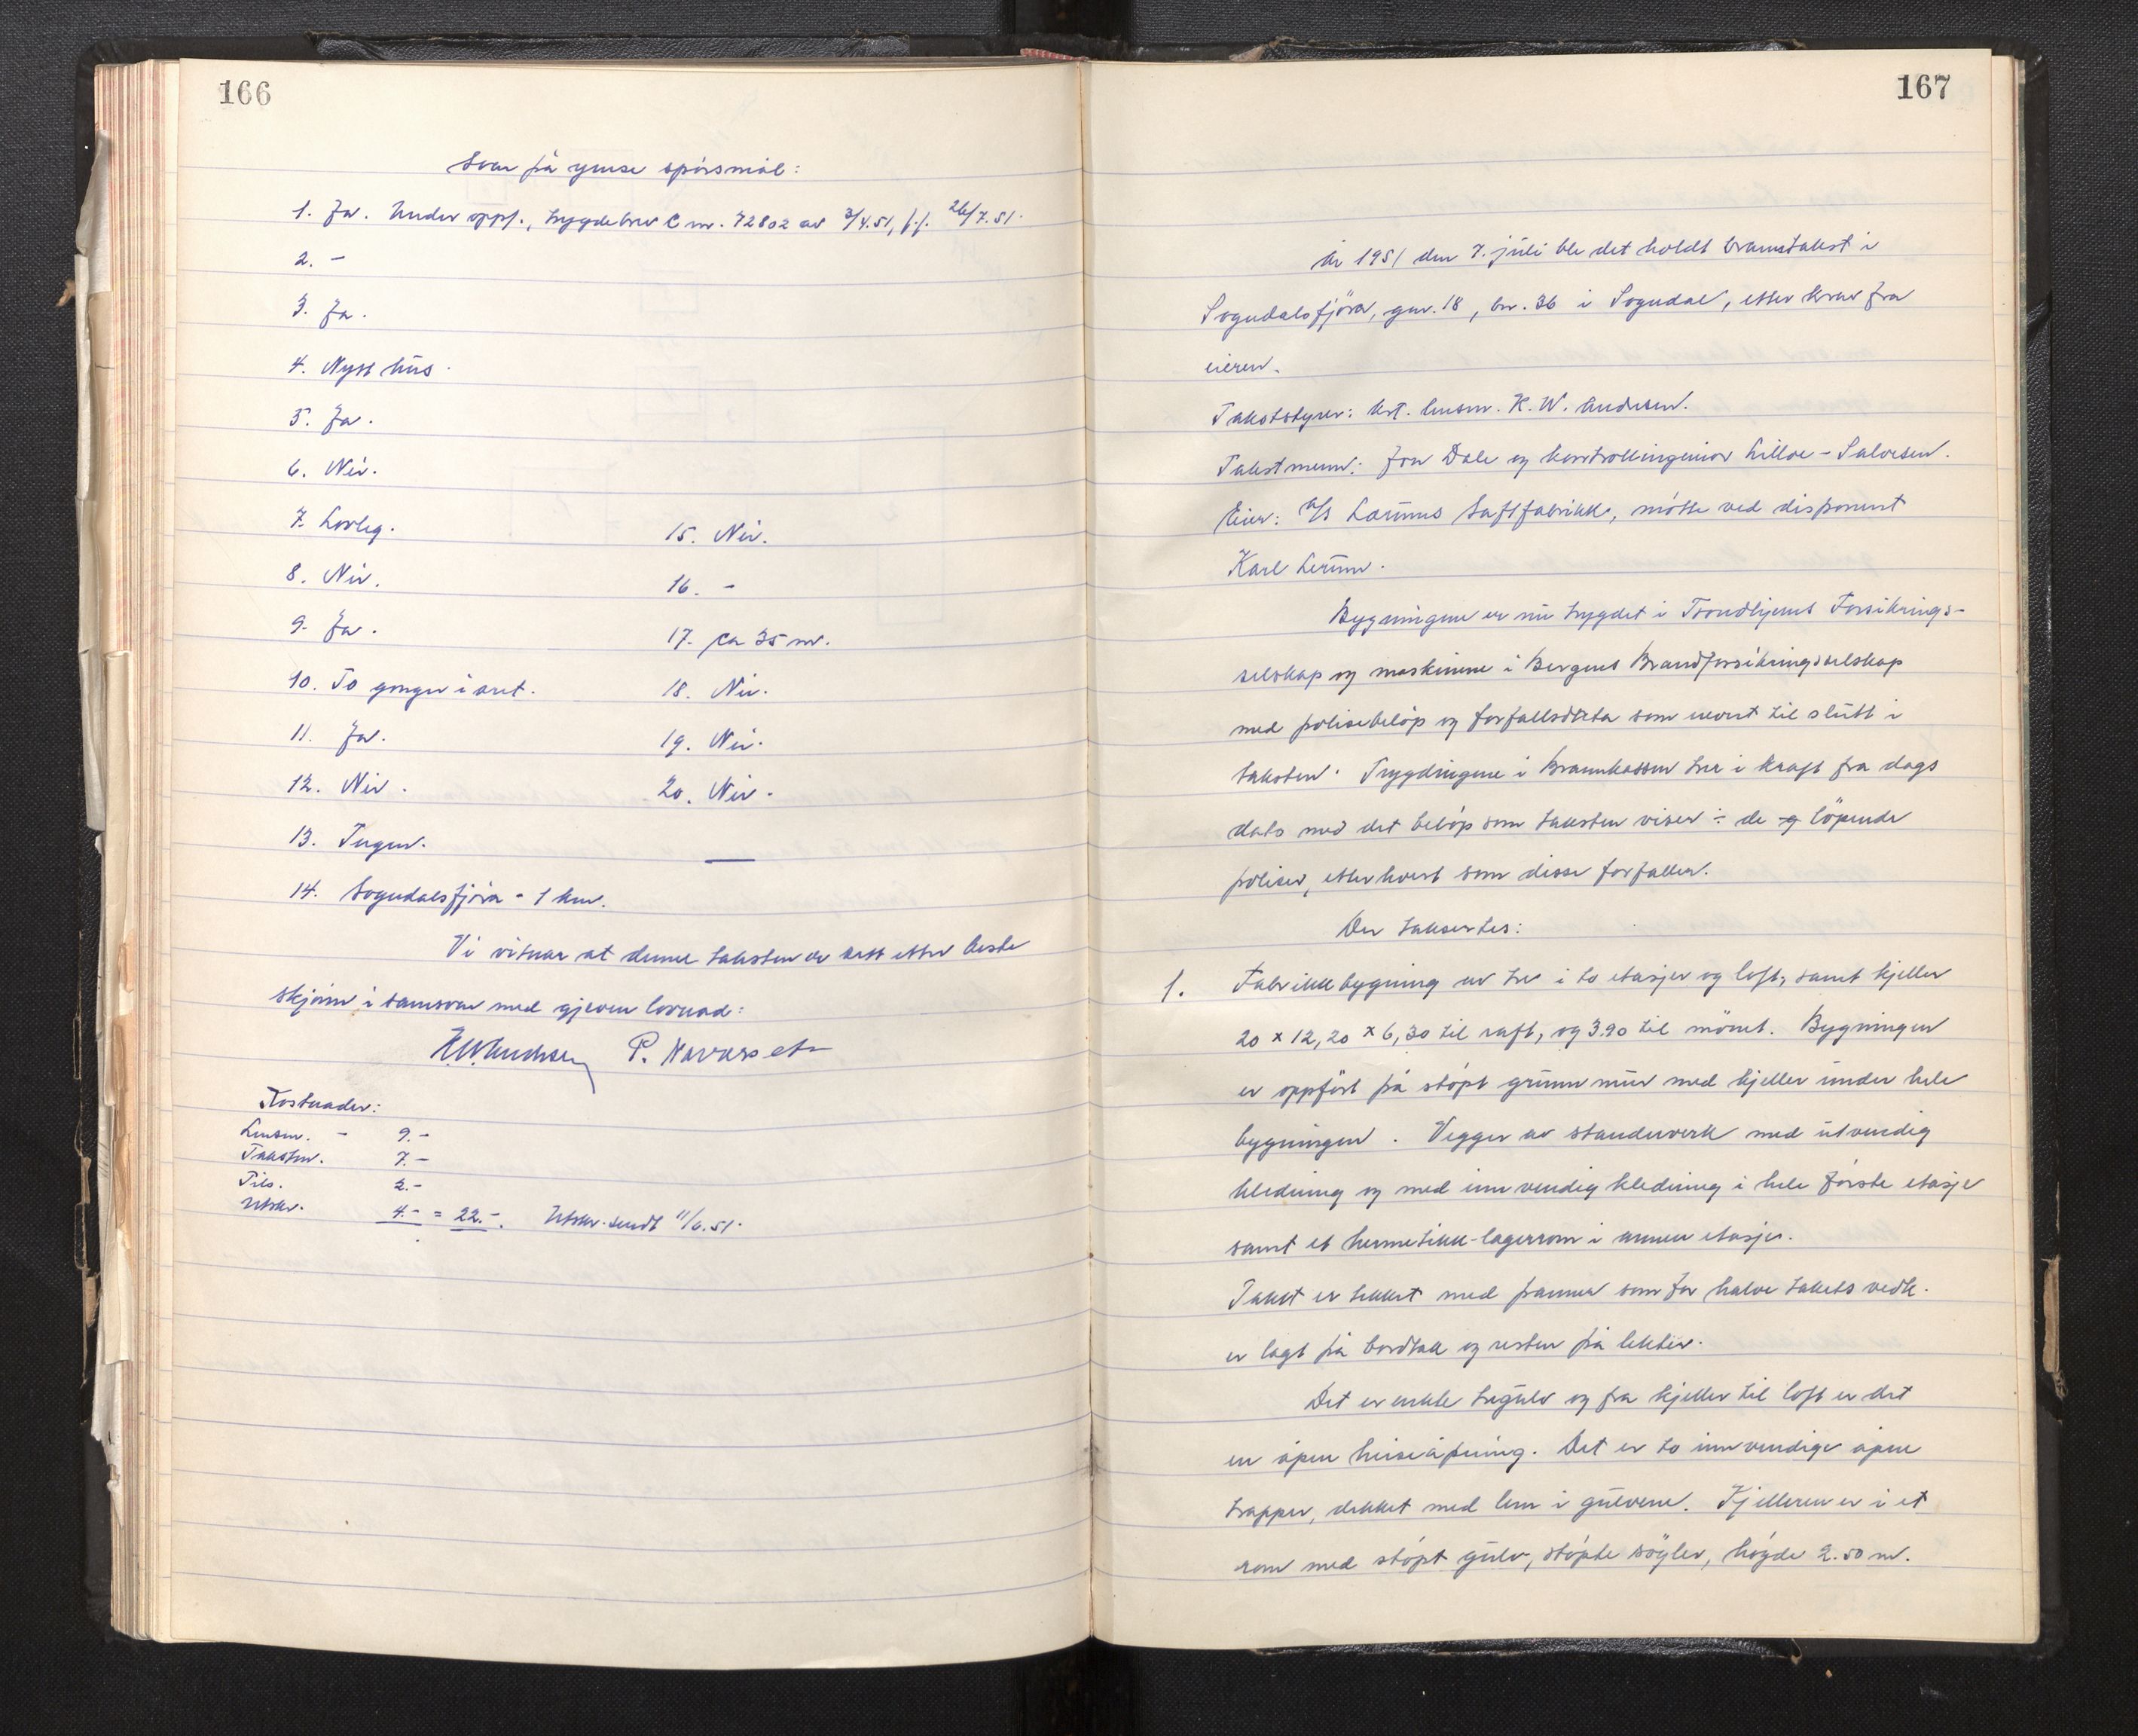 166
Svar på ymse spørsmål:
1. Ja. Under oppf., trygdebrev C nr. 72802 av 3/4.51, f.f. 26/7.51.
2. -
3. Ja.
4. Nytt hus.
5. Ja.
6. Nei.
7. Lovleg.
8. Nei.
9. Ja.
10. To gonger i året.
11. Ja.
12. Nei.
13. Ingen.
14. Sogndalsfjöra - 1 km.
15. Nei.
16. -
17. Ca 35 m.
18. Nei.
19. Nei.
20. Nei.
Vi vitnar at denne taksten er sett etter beste
skjönn i samsvar med gjeven lovnad:
K.W. Andresen P. Navarsete
Kostnader:
Lensm. - 9.-
Takstm. 7.-
Tils. 2.-
Utskr. 4.- = 22.-. Utskr. sendt 11/6.51.
167
År 1951 den 7. juli ble det holdt branntakst i
Sogndalsfjöra, gnr. 18, bnr. 36 i Sogndal, etter krav fra
eieren.
Takststyrer: kst. lensm. K. W. Andresen.
Takstmenn: Jon Dale og kontrollingeniør Lilloe-Salvesen.
Eier: A/S Lærums Saftfabrikk, møtte ved disponent
Karl Lerum.
Bygningene er nu trygdet i Trondhjems Forsikrings-
selskap og maskinene i Bergens Brandforsikringsselskap
med polisebeløp og forfallsdata som nevnt til slutt i
taksten. Trygdingene i Brannkassen trer i kraft fra dags
dato med det beløp som taksten viser ÷ de og löpende
poliser, etterhvert som disse forfaller.
Der takseres:
1. Fabrikkbygning av tre i to etasjer og loft, samt kjeller
20 x 12,20 x 6,30 til raft, og 3.90 til mönet. Bygningen
er oppfört på støpt grunnmur med kjeller under hele
bygningen. Vegger av standerverk med utvendig
kledning og med innvendig kledning i hele første etasje
samt et hermetikk-lagerrom i annen etasje.
Taket er tekket med panner som for halve takets vedk.
er lagt på bordtak og resten på lekter.
Det er enkle tregulv og fra kjeller til loft er det
en åpen heiseåpning. Det er to innvendige åpne
trapper, dekket med lem i gulvene. Kjelleren er i et
rom med støpt gulv, støpte söyler, høgde 2.50 m.